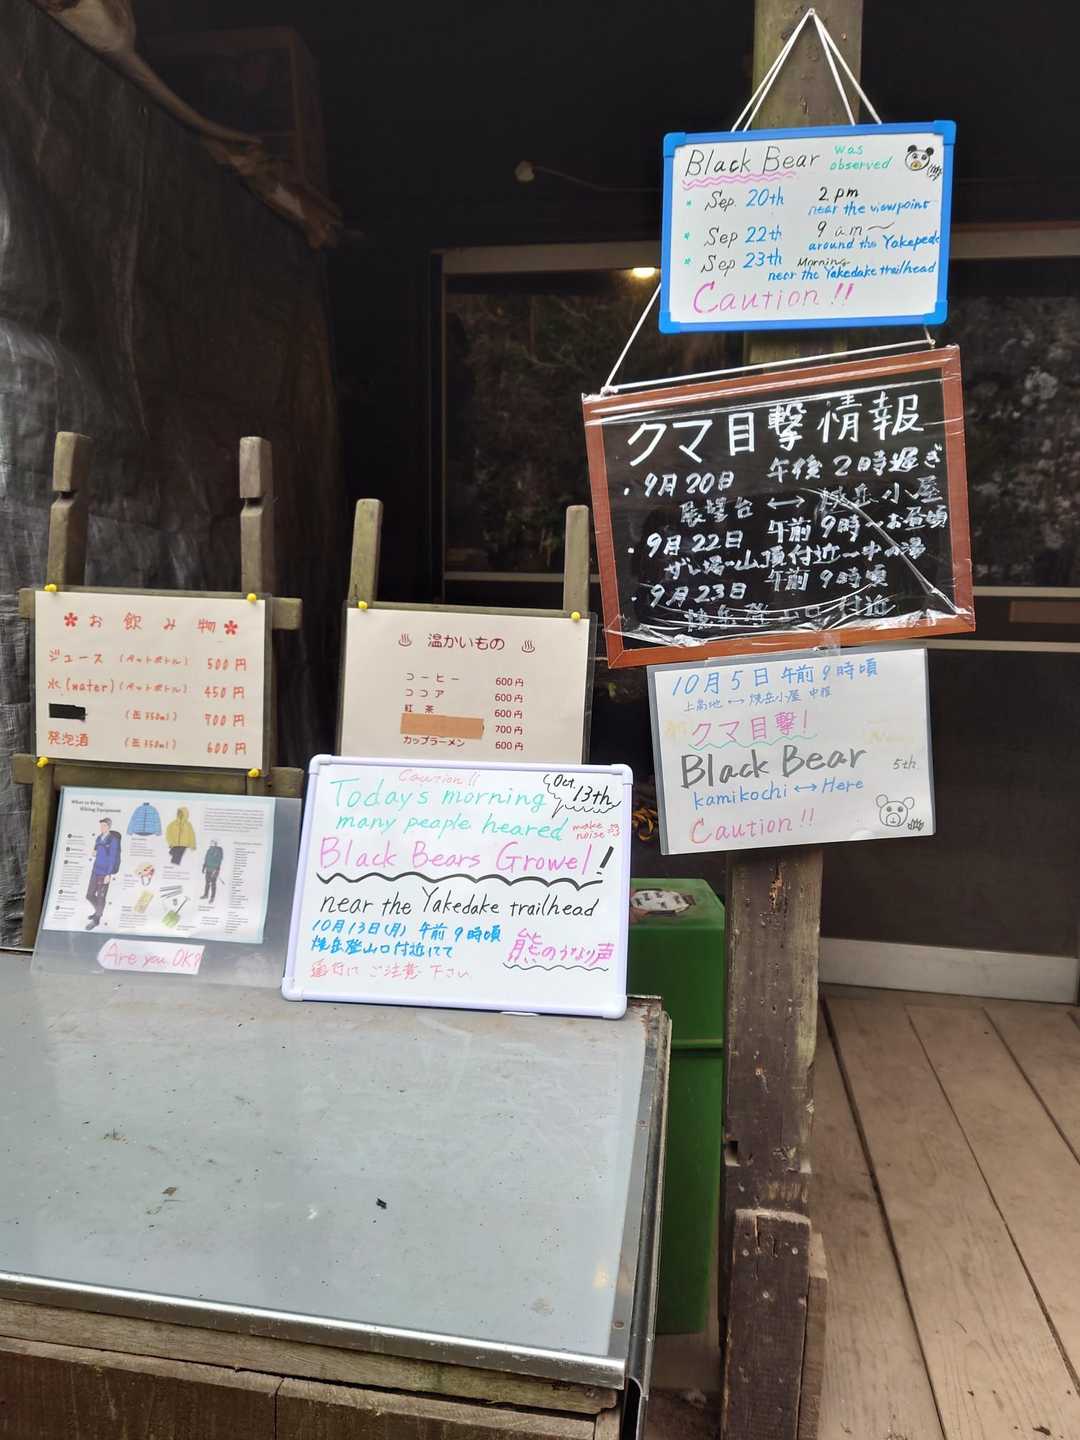 Black Bear was observed
* Sep. 20th 2 pm
near the viewpoint
* Sep 22th 9 am～
around the Yakepede
* Sep 23th Morning
near the Yakedake trailhead
Caution!!
クマ目撃情報
・9月20日 午後2時過ぎ
展望台 ⟷ 焼岳小屋
・9月22日 午前9時〜お昼頃
山頂付近〜中の湯
・9月23日 午前9時頃
焼岳登山口付近
10月5日 午前9時頃
上高地 ⟷ 焼岳小屋 中程
クマ目撃!
Black Bear 5th.
Kamikochi ⟷ Here
Caution!!
お飲み物
ジュース (ペットボトル) 500円
水(water) (ペットボトル) 450円
(缶350ml) 700円
発泡酒 (缶350ml) 600円
温かいもの
コーヒー 600円
ココア 600円
紅茶 600円
700円
カップラーメン 600円
What to Bring:
Hiking Equipment
Are you OK?
Caution!! Oct. 13th
Today's morning
many peaple heared make noise
Black Bears Growel!
near the Yakedake trailhead
10月13日(月) 午前9時頃
焼岳登山口付近にて 熊のうなり声
通行に ご注意 下さい